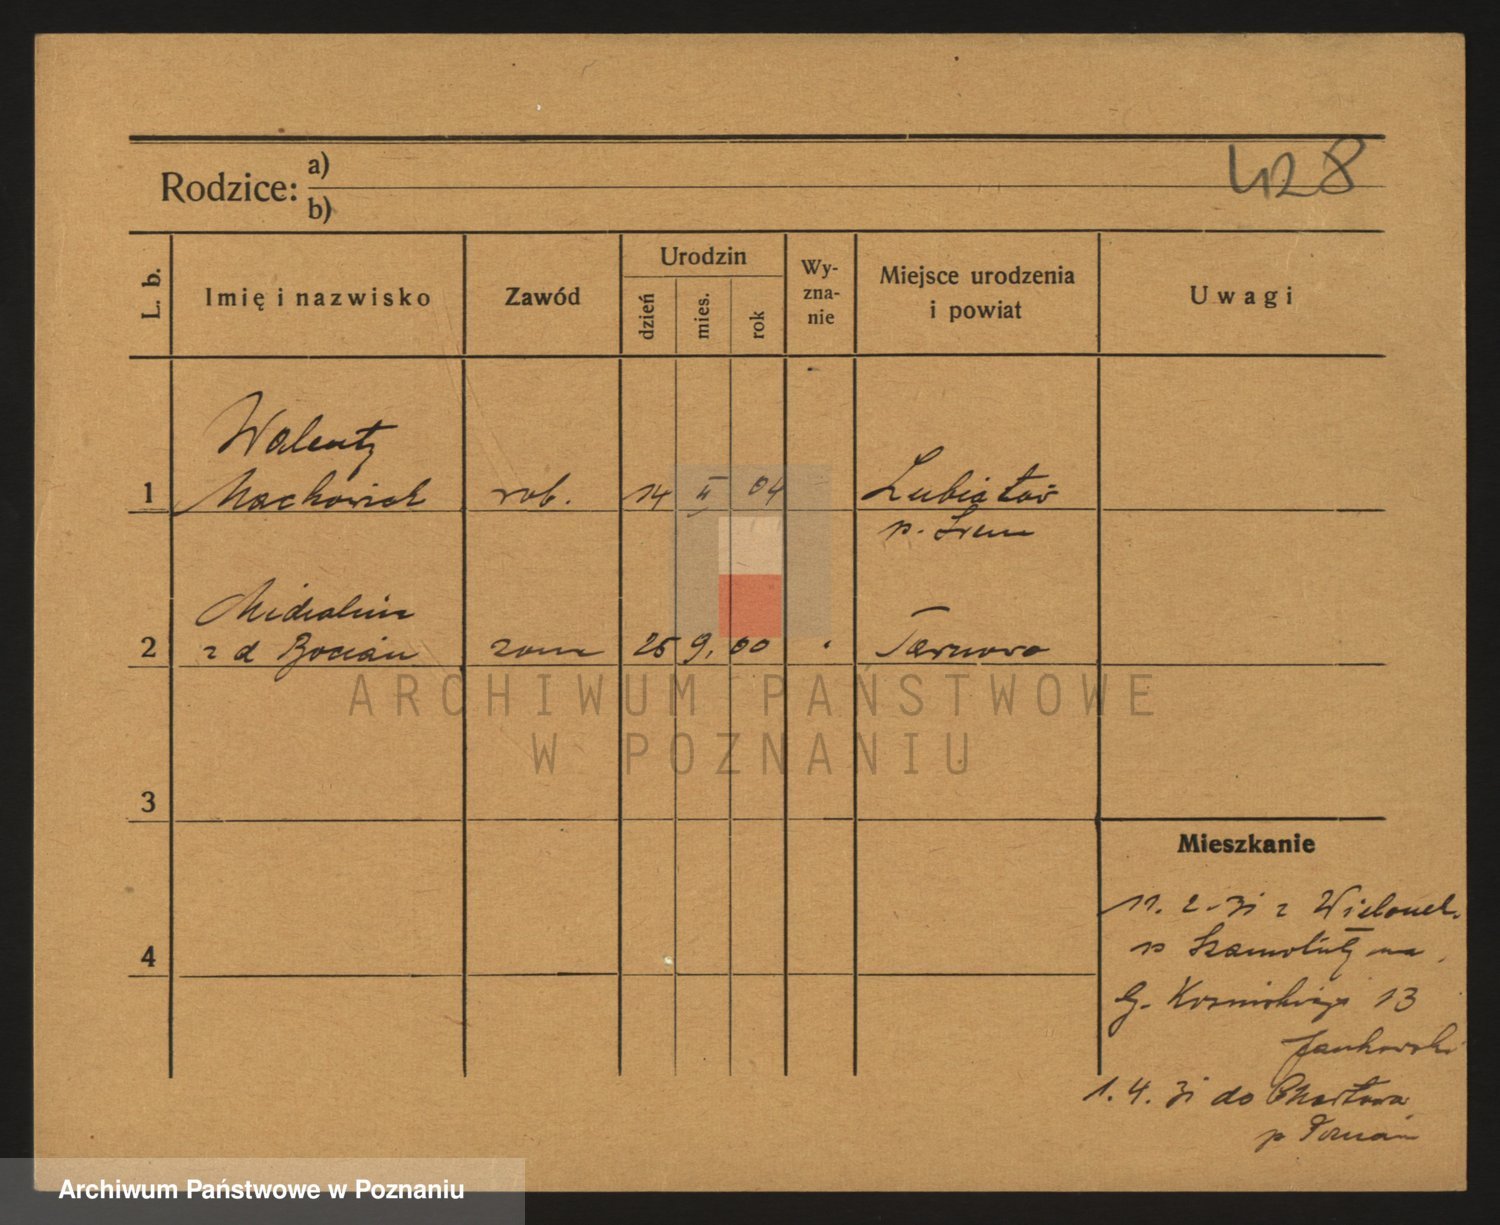 Rodzice: a)
b)
428
L. b.
Imię i nazwisko
Zawód
Urodzin
dzień
mies.
rok
Wy-
zna-
nie
Miejsce urodzenia
i powiat
Uwagi
Walenty
1 Maćkowiak rob. 14 II 04 Lubiatów
p. Śrem
2 z d Bocian 26 9. 00 Tarnowo
3
4
Mieszkanie
11. 2. 31 z
p Szamotuły na
G. 13
Jankowski
1. 4. 31 do Chartowa
p Poznań
ARCHIWUM PAŃSTWOWE
W POZNANIU
Archiwum Państwowe w Poznaniu